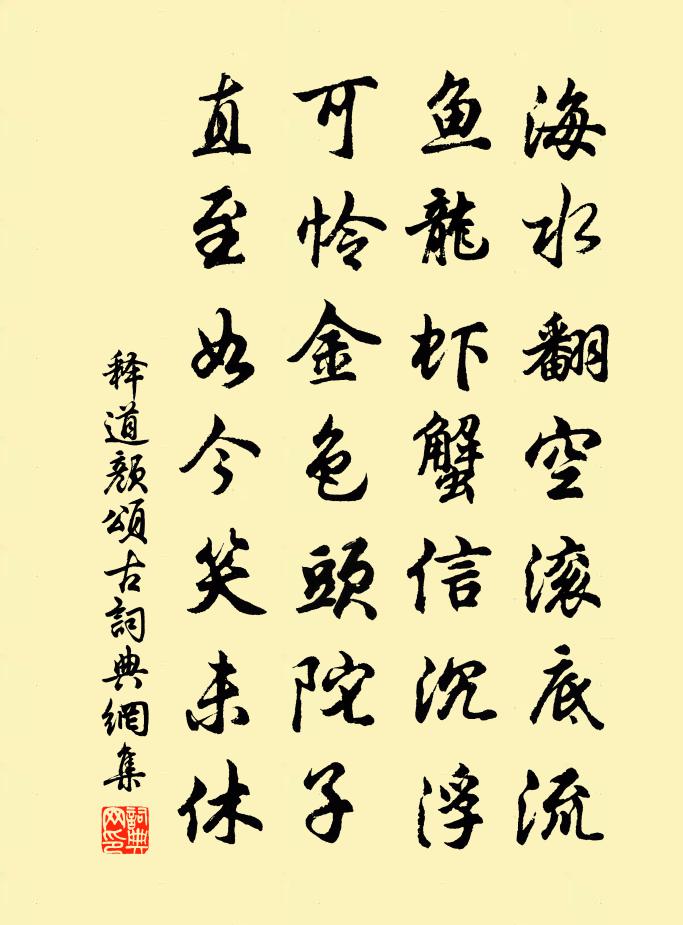 海水翻空滚底流
鱼龍虾蟹信沉浮
可怜金色頭陀子
直至如今笑未休
释道颜頌古詞典網集
詞典网印